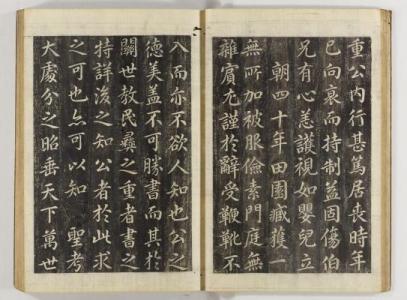 重公內行甚篤居喪時年
已向衰而持制益固傷伯
兄有心恙護視如嬰兒立
朝四十年田園臧獲一
無所加被服儉素門庭無
雜賓尤謹於辭受鞭靴不
入而亦不欲人知也公之
德美蓋不可勝書而其於
關世教民彝之重者書之
特詳後之知公者於此求
之可也亦可以知 聖考
大處分之昭垂天下萬世